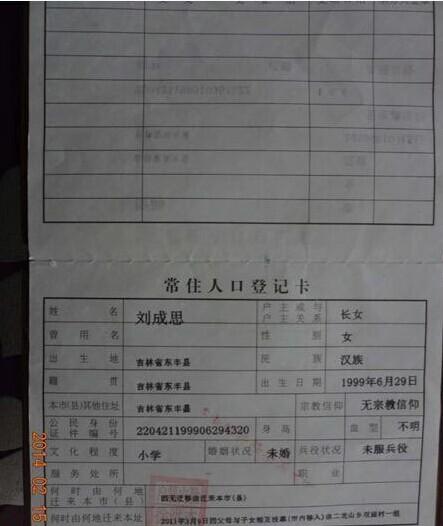 常住人口登记卡
姓名 刘成思 户主或与户主关系 长女
曾用名 性别 女
出生地 吉林省东丰县 民族 汉族
籍贯 吉林省东丰县 出生日期 1999年6月29日
本市(县)其他住址 吉林省东丰县 宗教信仰 无宗教信仰
公民身份证件编号 220421199906294320 身高 血型 不明
文化程度 小学 婚姻状况 未婚 兵役状况 未服兵役
服务处所 职业
何时由何地迁来本市(县) 因无迁移由迁来本市(县)
何时由何地迁来本址 2011年3月9日因父母与子女相互投靠(市内移入)由二龙山乡双庙村一组
2014 02 15